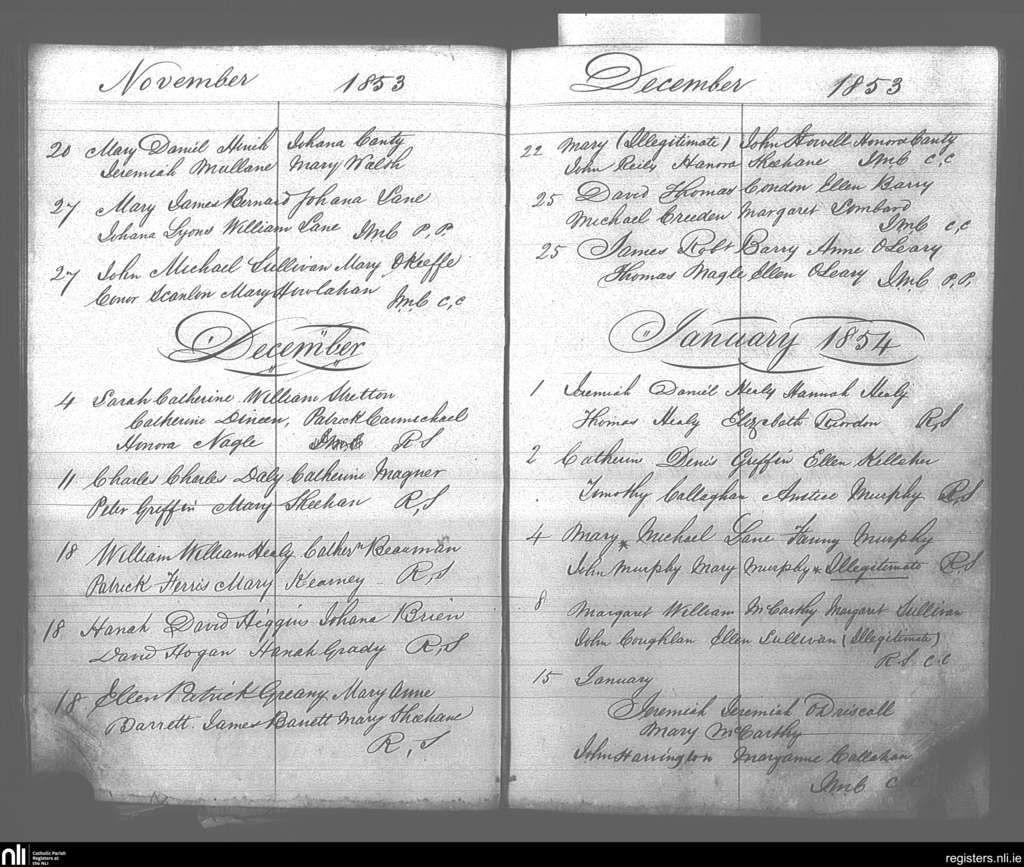 November 1853
20 Mary Daniel Hinch Johana Canty
Jeremiah Mullane Mary Walsh
27 Mary James Bernard Johana Lane
Johana Lyons William Lane JMC P.P.
27 John Michael Sullivan Mary OKeeffe
Conor Scanlon Mary Howlahan
JMC C,C
December
4 Sarah Catherine William Stretton
Catherine Dineen, Patrick Carmichael
Honora Nagle JMC R S
11 Charles Charles Daly Catherine Magner
Peter Griffin Mary Sheehan R,S
18 William William Healy Cathern Beauman
Patrick Ferris Mary Kearney R,S
18 Hanah David Higgins Johana Brien
David Hogan Hanah Grady R,S
18 Ellen Patrick Greany Mary Anne
Barrett James Barrett Mary Sheehane
R,S
December 1853
22 Mary (Illegitimate) John Howell Honora Canty
John Reily Hanora Sheehane JMC C,C
25 David Thomas Condon Ellen Barry
Michael Creeden Margaret Lombard
JMC C,C
25 James Robt Barry Anne OLeary
Thomas Nagle Ellen OLeary JMC P.P.
January 1854
1 Jeremiah Daniel Healy Hannah Healy
Thomas Healy Elizabeth Riordon R,S
2 Catherin Denis Griffin Ellen Killeher
Timothy Callaghan Anstice Murphy R,S
4 Mary * Michael Lane Fanny Murphy
John Murphy Mary Murphy * Illegitimate R,S
8 Margaret William McCarthy Margaret Sullivan
John Coughlan Ellen Sullivan (Illegitimate)
R.S C C
15 January
Jeremiah Jeremiah ODriscoll
Mary McCarthy
John Harrington Maryanne Callahan
JMC C
nli Catholic Parish
Registers at
the NLI
registers.nli.ie